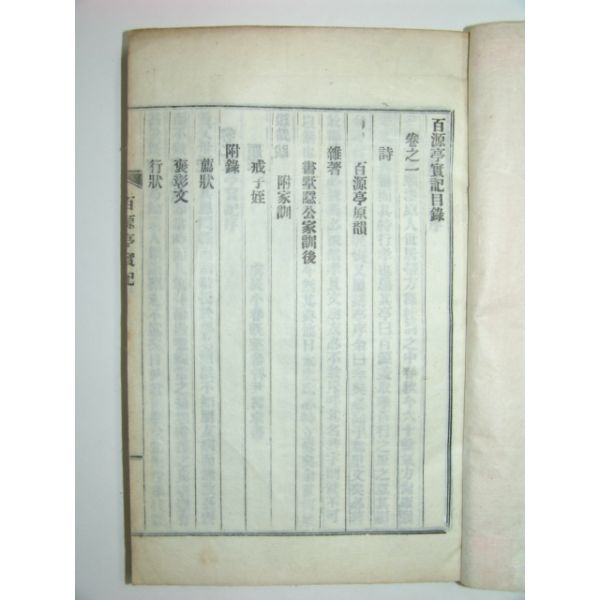 百源亭實記目錄
卷之一
詩
百源亭原韻
雜著
書墅隱公家訓後
附家訓
戒子姪
附錄
薦狀
褒彰文
行狀
百源亭實記